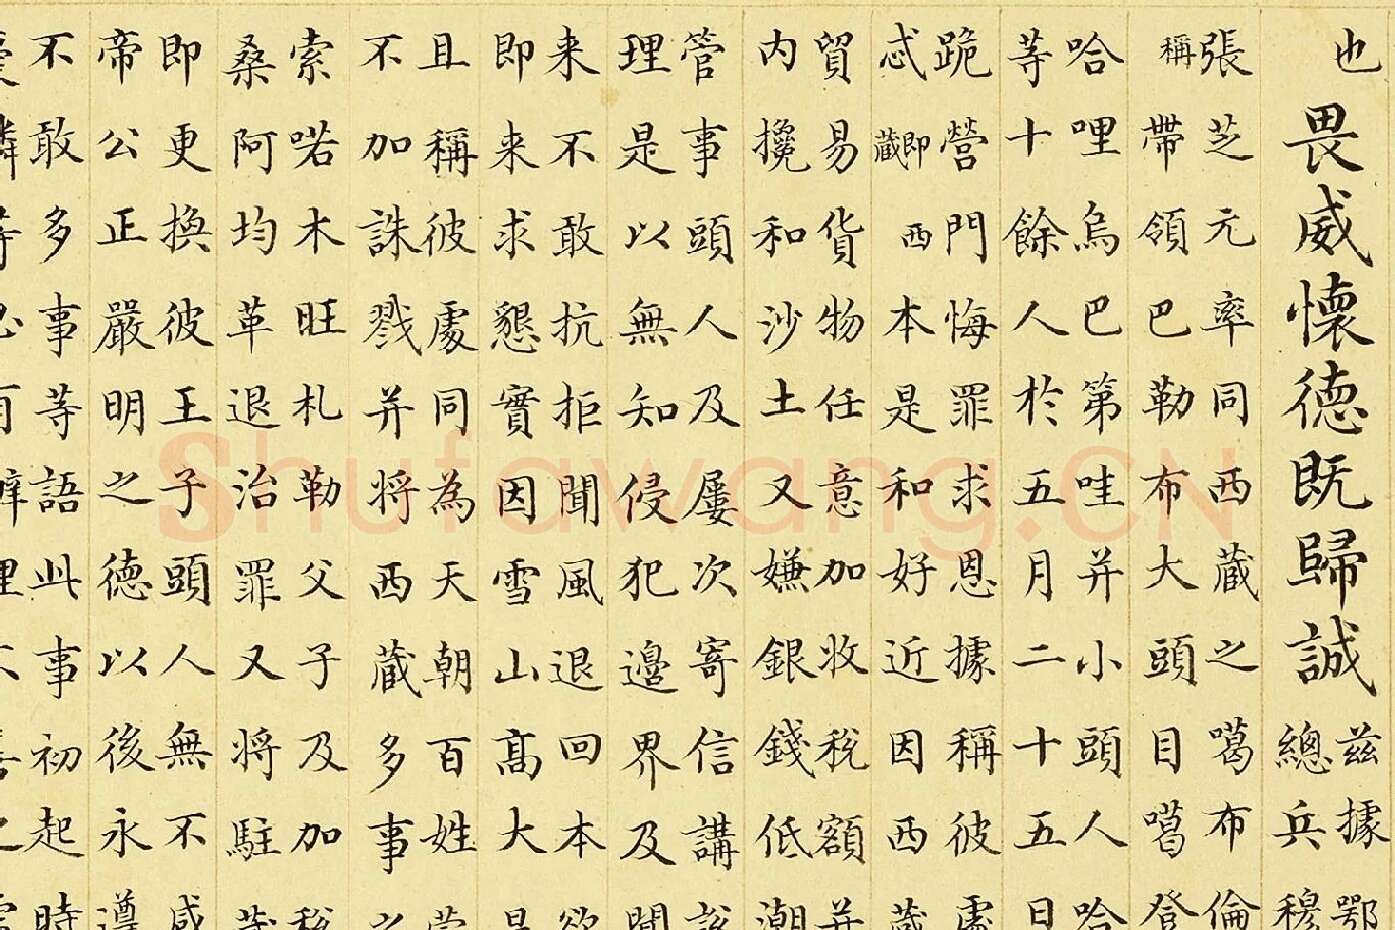 也畏威懷德既歸誠
兹據鄂
總兵穆
張芝元率同西藏之噶布倫
稱帶領巴勒布大頭目噶登
哈哩烏巴第哇并小頭人哈
等十餘人於五月二十五日
跪營門悔罪求恩據稱彼處
忒即藏西本是和好近因西藏
貿易貨物任意加收稅額并
内攙和沙土又嫌銀錢低潮
管事頭人及屢次寄信講說
理是以無知侵犯邊界及聞
来不敢抗拒聞風退回本欲
即来求懇實因雪山高大是
且稱彼處同為天朝百姓蒙
不加誅戮并將西藏多事之
索喏木旺札勒父子及加稅
桑阿均革退治罪又將駐藏
即更換彼王子頭人無不感
帝公正嚴明之德以後永遵
不敢多事等語此事初起時
Shufawang.CN